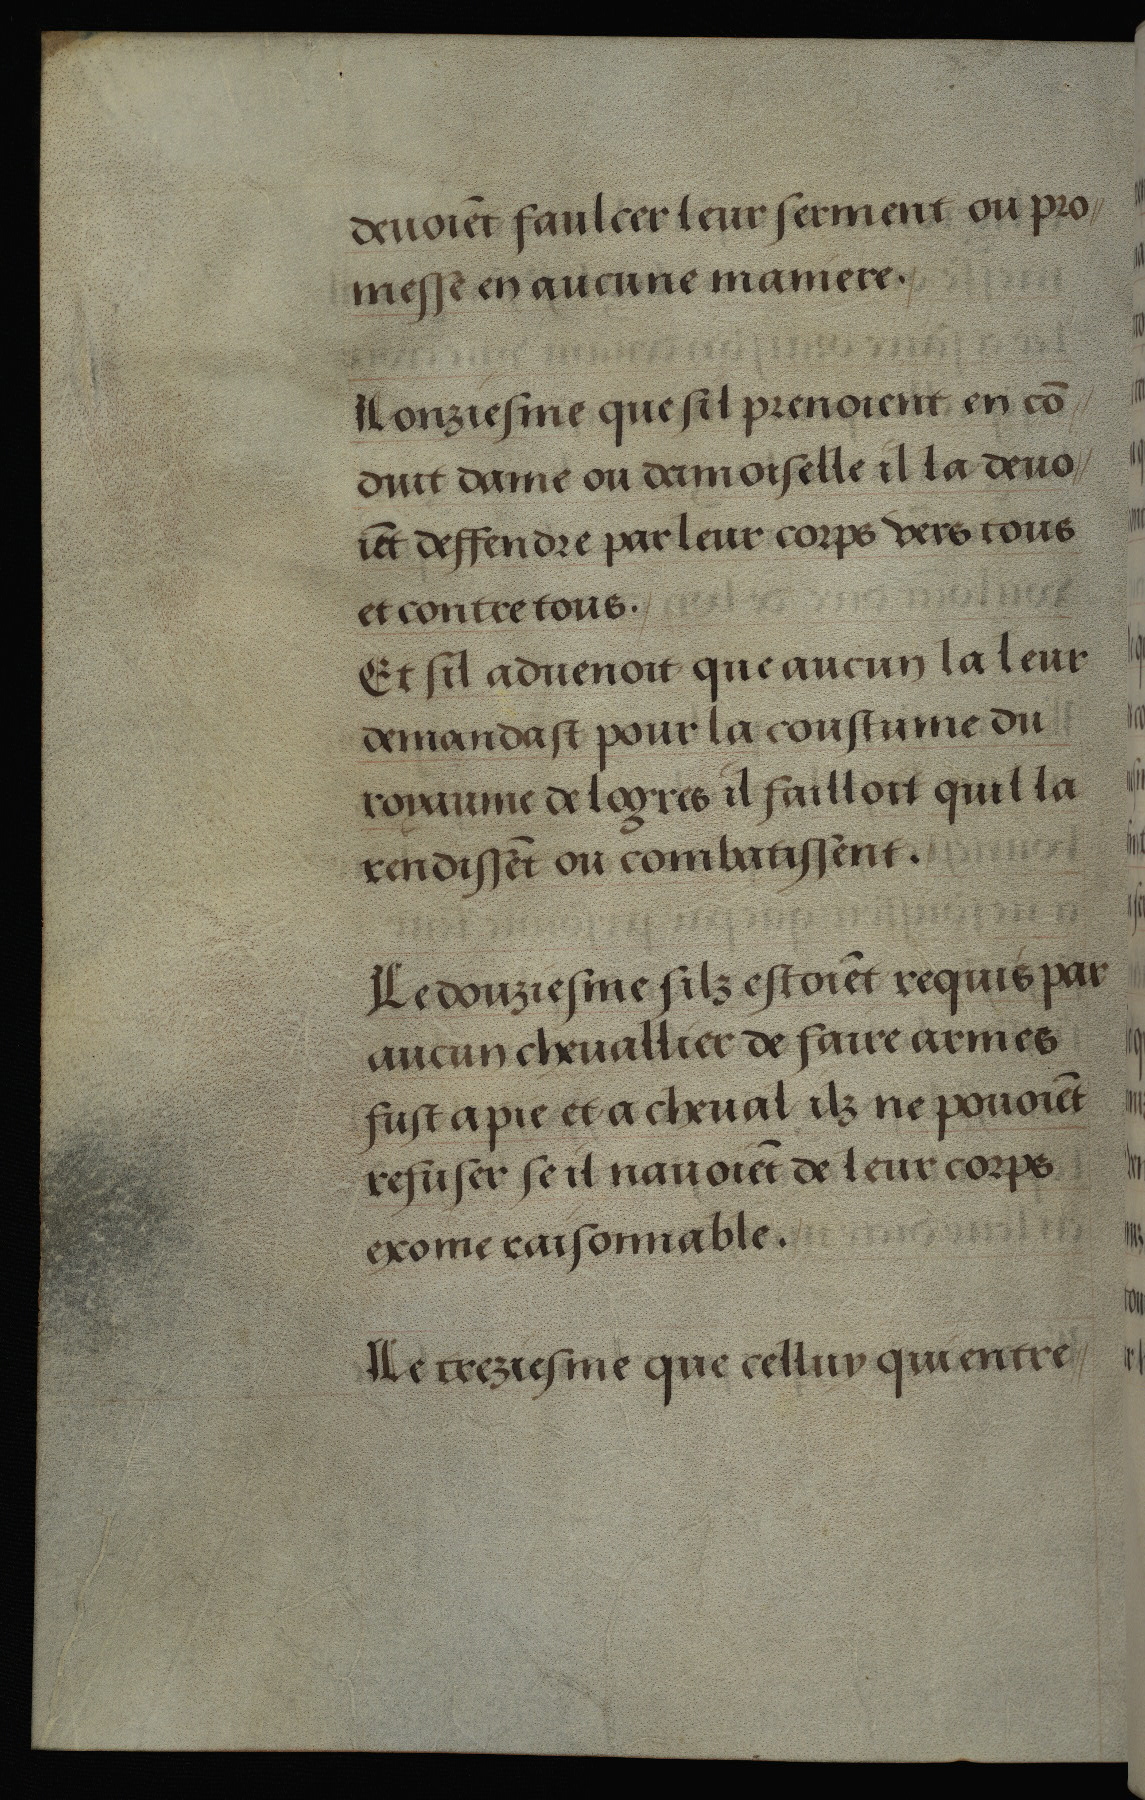 deuoiẽt faulcer leur serment ou pro//
messe en aucune maniere./
Lonziesme que sil prenoient en cõ//
duit dame ou damoiselle il la deuo//
iẽt deffendre par leur corps vers tous
et contre tous./
Et sil aduenoit que aucun la leur
demandast pour la coustume du
royaume de logres il failloit quil la
rendissẽt ou combatissent.
Le douziesme silz estoiẽt requis par
aucun cheuallier de faire armes
fust a pie et a cheual ilz ne pouoiẽt
refuser se il nauoiẽt de leur corps
exome raisonnable./
Le treziesme que celluy qui entre//